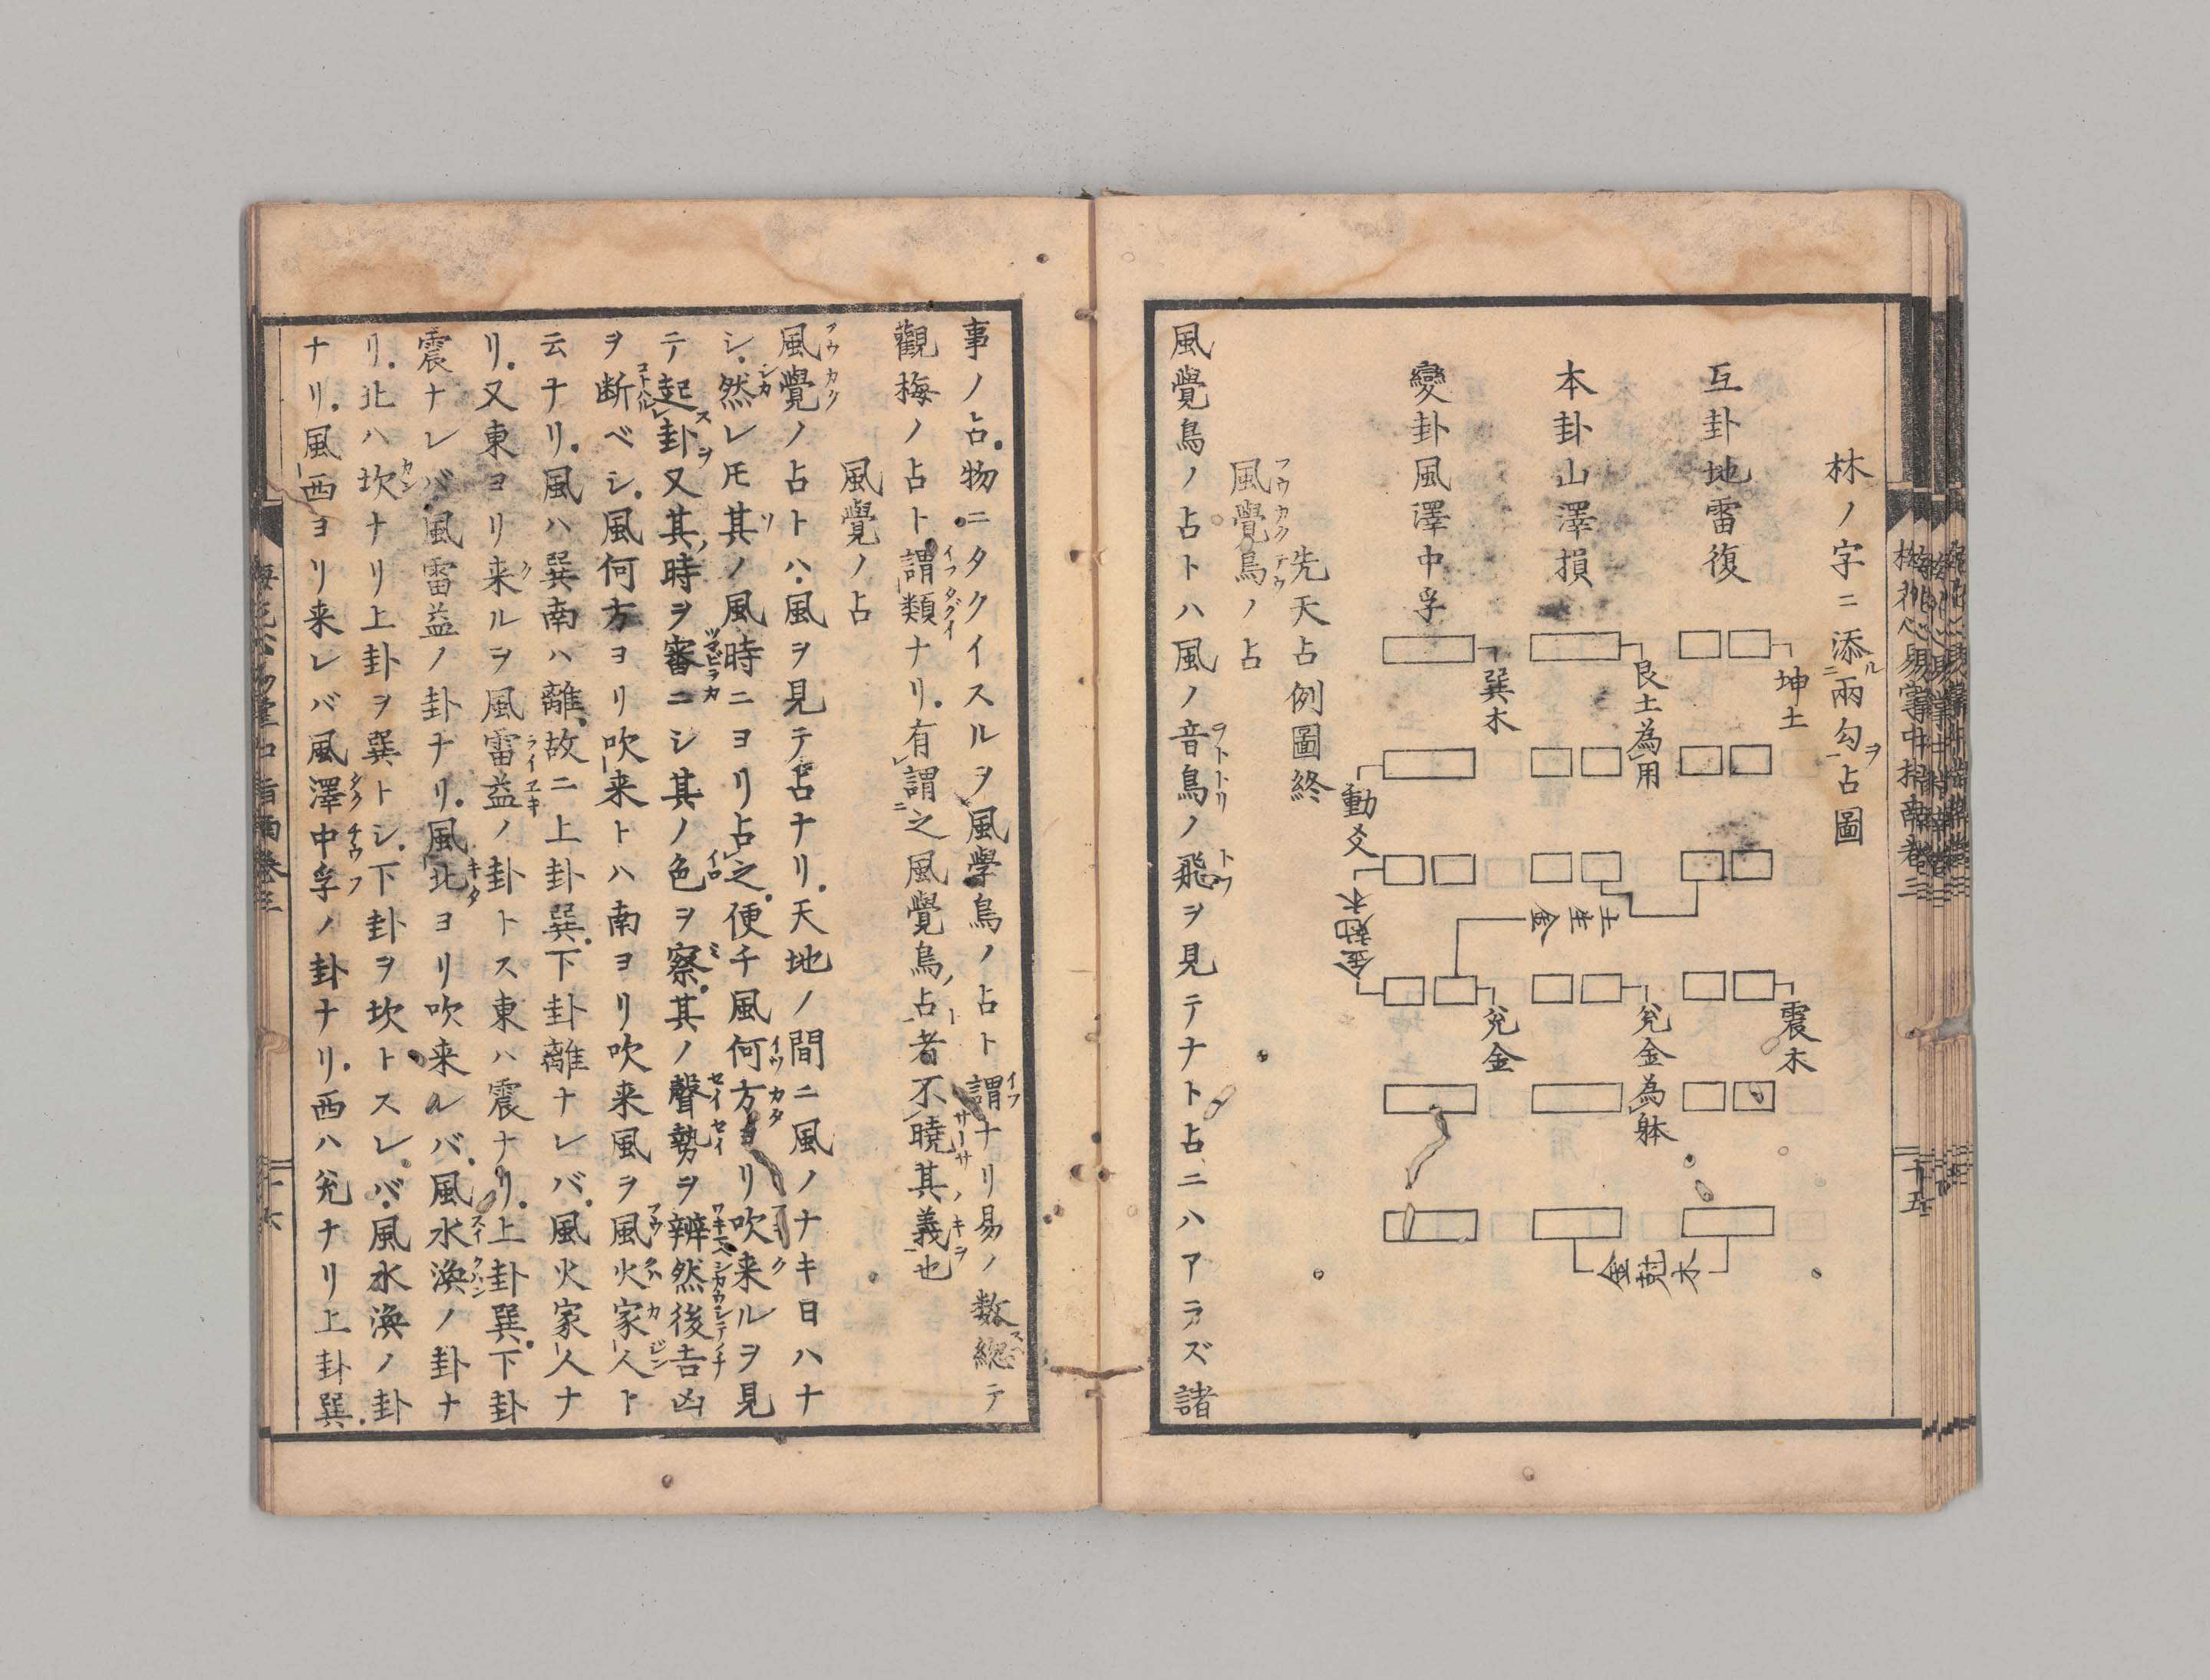 林ノ字ニ添ル兩勾ヲ占圖
互卦地雷復
坤土
震木
本卦山澤損
艮土為用
兊金為躰
土生金
金尅木
變卦風澤中孚
巽木
兊金
動爻
金尅木
先天占例圖終
風覺鳥ノ占
フウカクテウ
風覺鳥ノ占トハ風ノ音鳥ノ飛ヲ見テナト占ニハアラズ諸
十五
事ノ占物ニタクイスルヲ風學鳥ノ占ト謂ナリ易ノ数総テ
觀梅ノ占ト謂類ナリ有謂之風覺鳥占者不曉其義也
風覺ノ占
風覺ノ占トハ風ヲ見テ占ナリ天地ノ間ニ風ノナキ日ハナ
シ然レ𪜈其ノ風時ニヨリ占之便チ風何方ヨリ吹来ルヲ見
テ起卦又其時ヲ審ニシ其ノ色ヲ察其ノ聲勢ヲ辨然後吉凶
ヲ断ベシ風何方ヨリ吹来トハ南ヨリ吹来風ヲ風火家人ト
云ナリ風ハ巽南ハ離故ニ上卦巽下卦離ナレバ風火家人ナ
リ又東ヨリ来ルヲ風雷益ノ卦トス東ハ震ナリ上卦巽下卦
震ナレバ風雷益ノ卦ナリ風北ヨリ吹来ルバ風水渙ノ卦ナ
リ北ハ坎ナリ上卦ヲ巽トシ下卦ヲ坎トスレバ風水渙ノ卦
ナリ風西ヨリ来レバ風澤中孚ノ卦ナリ西ハ兊ナリ上卦巽